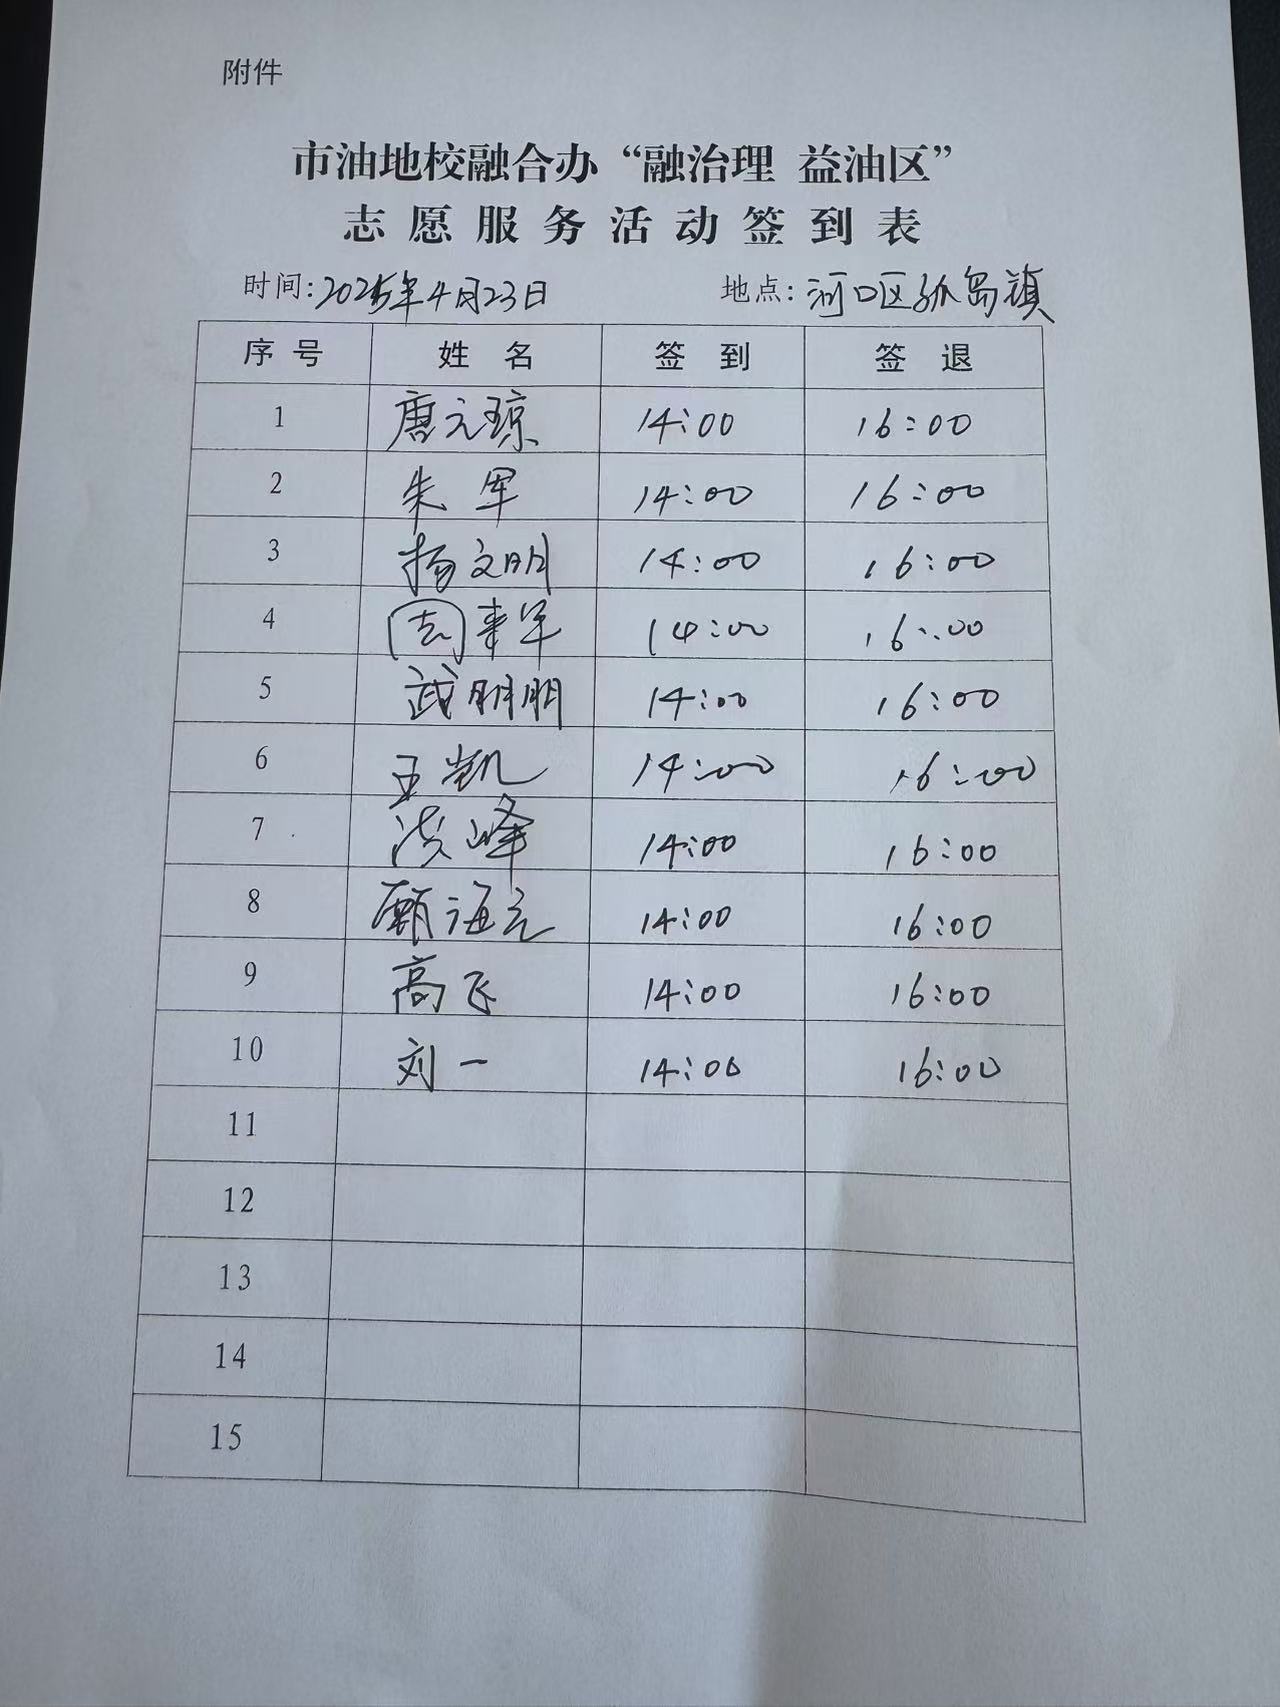 附件
市油地校融合办“融治理 益油区”
志愿服务活动签到表
时间:2025年4月23日 地点:河口区孤岛镇
序号 姓名 签到 签退
1 唐元琼 14:00 16:00
2 朱军 14:00 16:00
3 杨文明 14:00 16:00
4 周来军 14:00 16:00
5 武朋朋 14:00 16:00
6 王凯 14:00 16:00
7 洪峰 14:00 16:00
8 顾海元 14:00 16:00
9 高飞 14:00 16:00
10 刘一 14:00 16:00
11
12
13
14
15